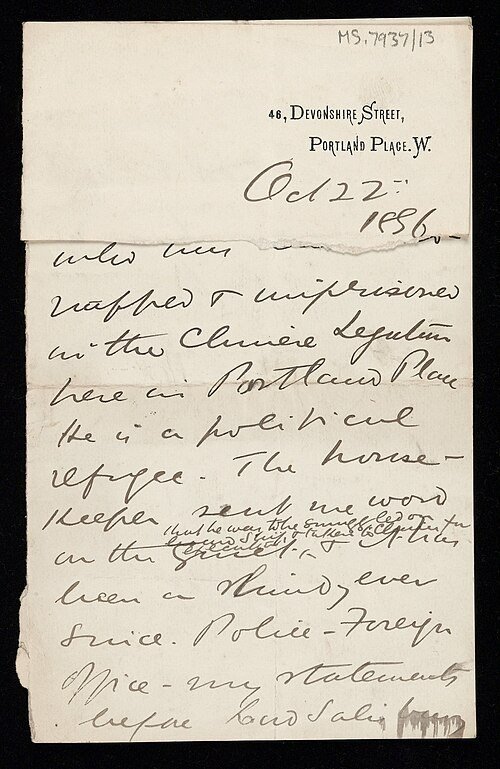 MS.7937/13
46, DEVONSHIRE STREET,
PORTLAND PLACE. W.
Oct 22
1896
who was
napped & imprisoned
in the Chinese Legation
here in Portland Place
He is a political
refugee. The house-
keeper sent me word
that he was to be smuggled on
board ship & taken to China for
execution
on the quiet. It has
been a shindy ever
since. Police - Foreign
Office - my statements
before Lord Salis